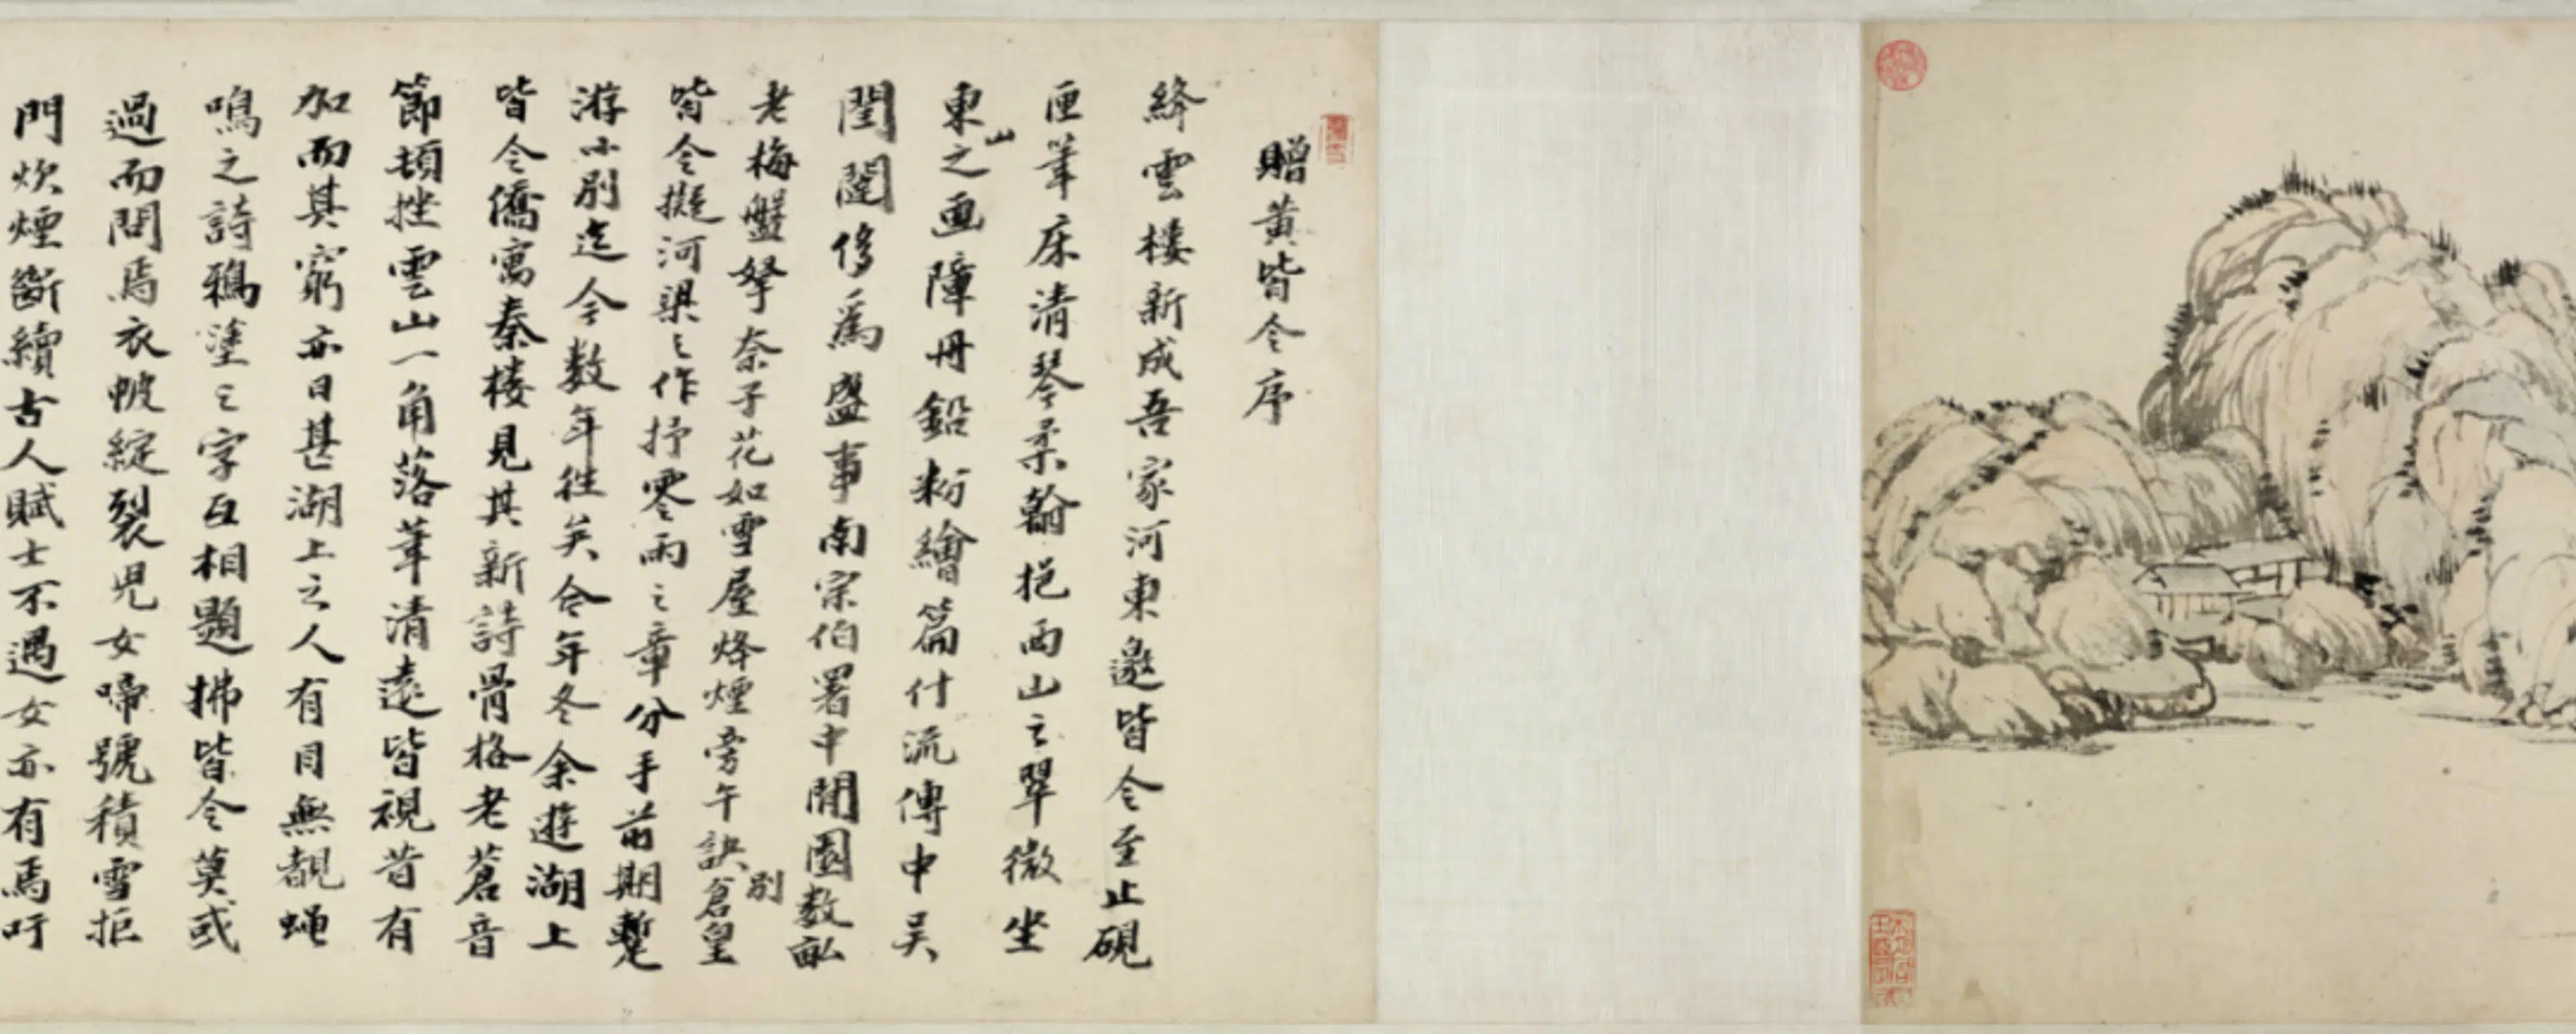 贈黃皆令序
絳雲樓新成吾家河東邀皆令至止硯
匣筆床清琴柔翰挹西山之翠微坐
東山之畫障丹鉛粉繪篇什流傳中吳
閨闥侈為盛事南宗伯署中閒園數畝
老梅盤拏奈子花如雪屋烽煙旁午訣別倉皇
皆令擬河梁之作抒零雨之章分手前期暫
游小別迄今數年往矣今年冬余遊湖上
皆令僑寓秦樓見其新詩骨格老蒼音
節頓挫雲山一角落筆清遠皆視昔有
加而其窮亦日甚湖上之人有目無覩蠅
鳴之詩鴉塗之字互相題拂皆令莫或
過而問焉衣帔綻裂兒女啼號積雪拒
門炊煙斷續古人賦士不遇女亦有焉吁